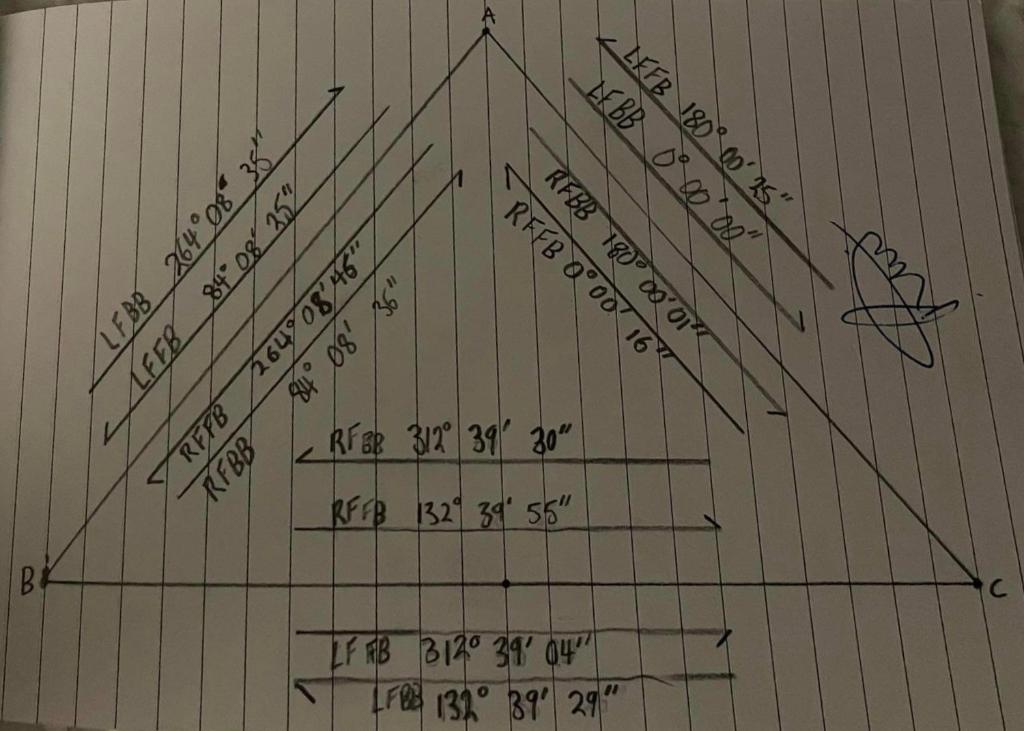 A
LFFB 180° 00' 25"
LFBB 0° 00' 00"
RFBB 180° 00' 01"
RFFB 0° 00' 16"
LFBB 264° 08' 35"
LFFB 84° 08' 25"
RFFB 264° 08' 46"
RFBB 84° 08' 36"
RFBB 312° 39' 30"
RFFB 132° 39' 55"
B
C
LFFB 312° 39' 04"
LFBB 132° 39' 29"